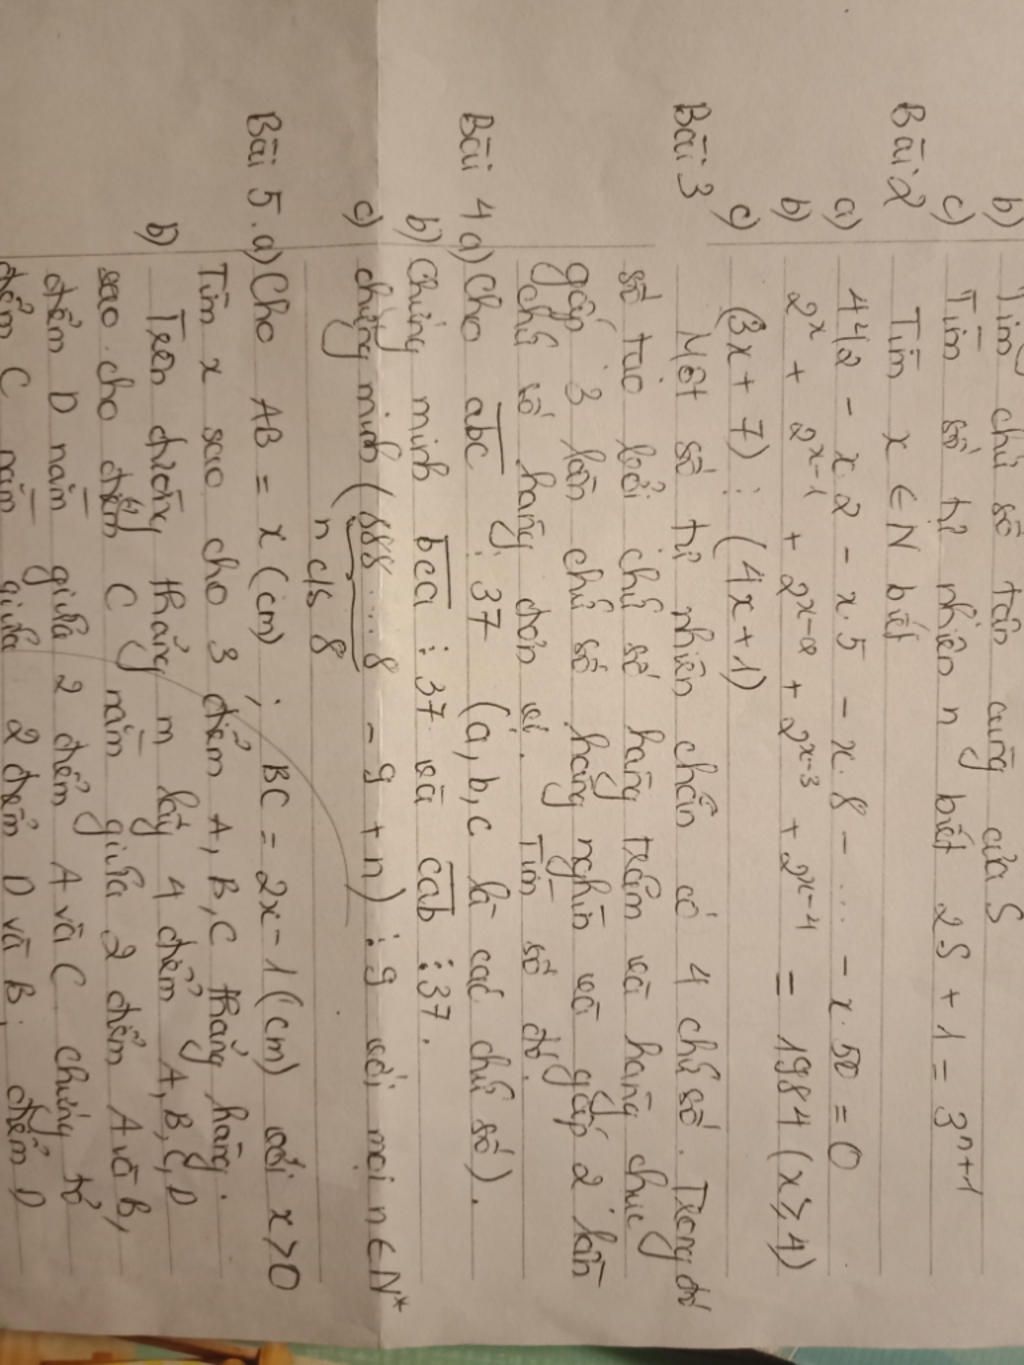 b) Tìm chữ số tận cùng của S
c) Tìm số tự nhiên n biết 2S + 1 = 3ⁿ⁺¹
Bài 2 Tìm x ∈ N biết
a) 442 - x.2 - x.5 - x.8 - .... - x.50 = 0
b) 2ˣ + 2ˣ⁻¹ + 2ˣ⁻² + 2ˣ⁻³ + 2ˣ⁻⁴ = 1984 (x ⩾ 4)
c) (3x + 7) ⋮ (4x + 1)
Bài 3 Một số tự nhiên chẵn có 4 chữ số. Trong đó
số tạo bởi chữ số hàng trăm và hàng chục
gấp 3 lần chữ số hàng nghìn và gấp 2 lần
chữ số hàng đơn vị. Tìm số đó.
Bài 4 a) Cho a̅b̅c̅ ⋮ 37 (a, b, c là các chữ số).
Chứng minh b̅c̅a̅ ⋮ 37 và c̅a̅b̅ ⋮ 37.
b)
c) chứng minh (888....8 - 9 + n) ⋮ 9 với mọi n ∈ N*
n c/s 8
Bài 5. a) Cho AB = x (cm) ; BC = 2x - 1 (cm) với x > 0
Tìm x sao cho 3 điểm A, B, C thẳng hàng.
b) Trên đường thẳng m lấy 4 điểm A, B, C, D
sao cho điểm C nằm giữa 2 điểm A và B,
điểm D nằm giữa 2 điểm A và C chứng tỏ
điểm C nằm giữa 2 điểm D và B; điểm D